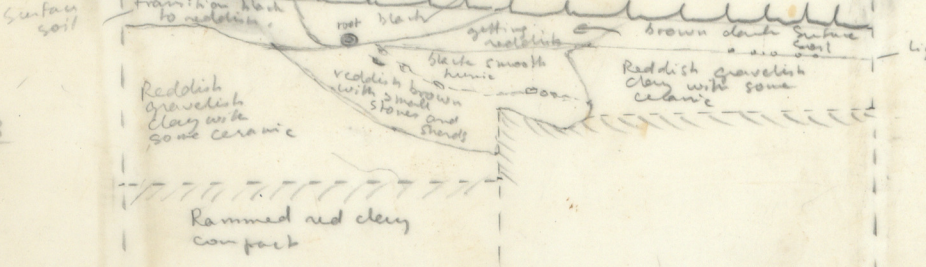 Surface
soil
transition black
to reddish.
root
black
getting
reddish
brown dark Surface
soil
black smooth
humic
reddish brown
with small
stones and
sherds
Reddish gravelish
clay with some
ceramic
Reddish
gravelish
clay with
some ceramic
Rammed red clay
compact